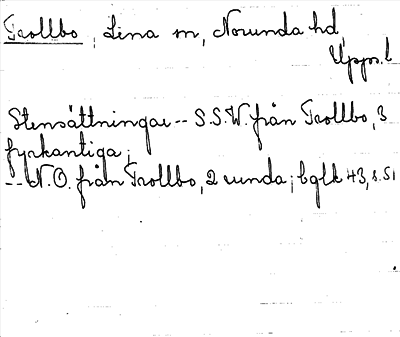 Trollbo, Lina sn, Norunda hd
Upps. l
Stensättningar -- S.S.W. från Trollbo, 3
fyrkantiga;
-- N.O. från Trollbo, 2 runda; bglk 43, s. 51